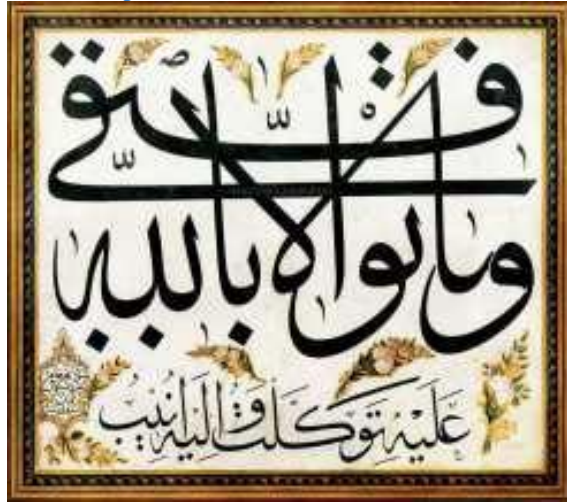 وما توفيقي إلا بالله
عَلَيْهِ تَوَكَّلْتُ وَإِلَيْهِ أُنِيبُ